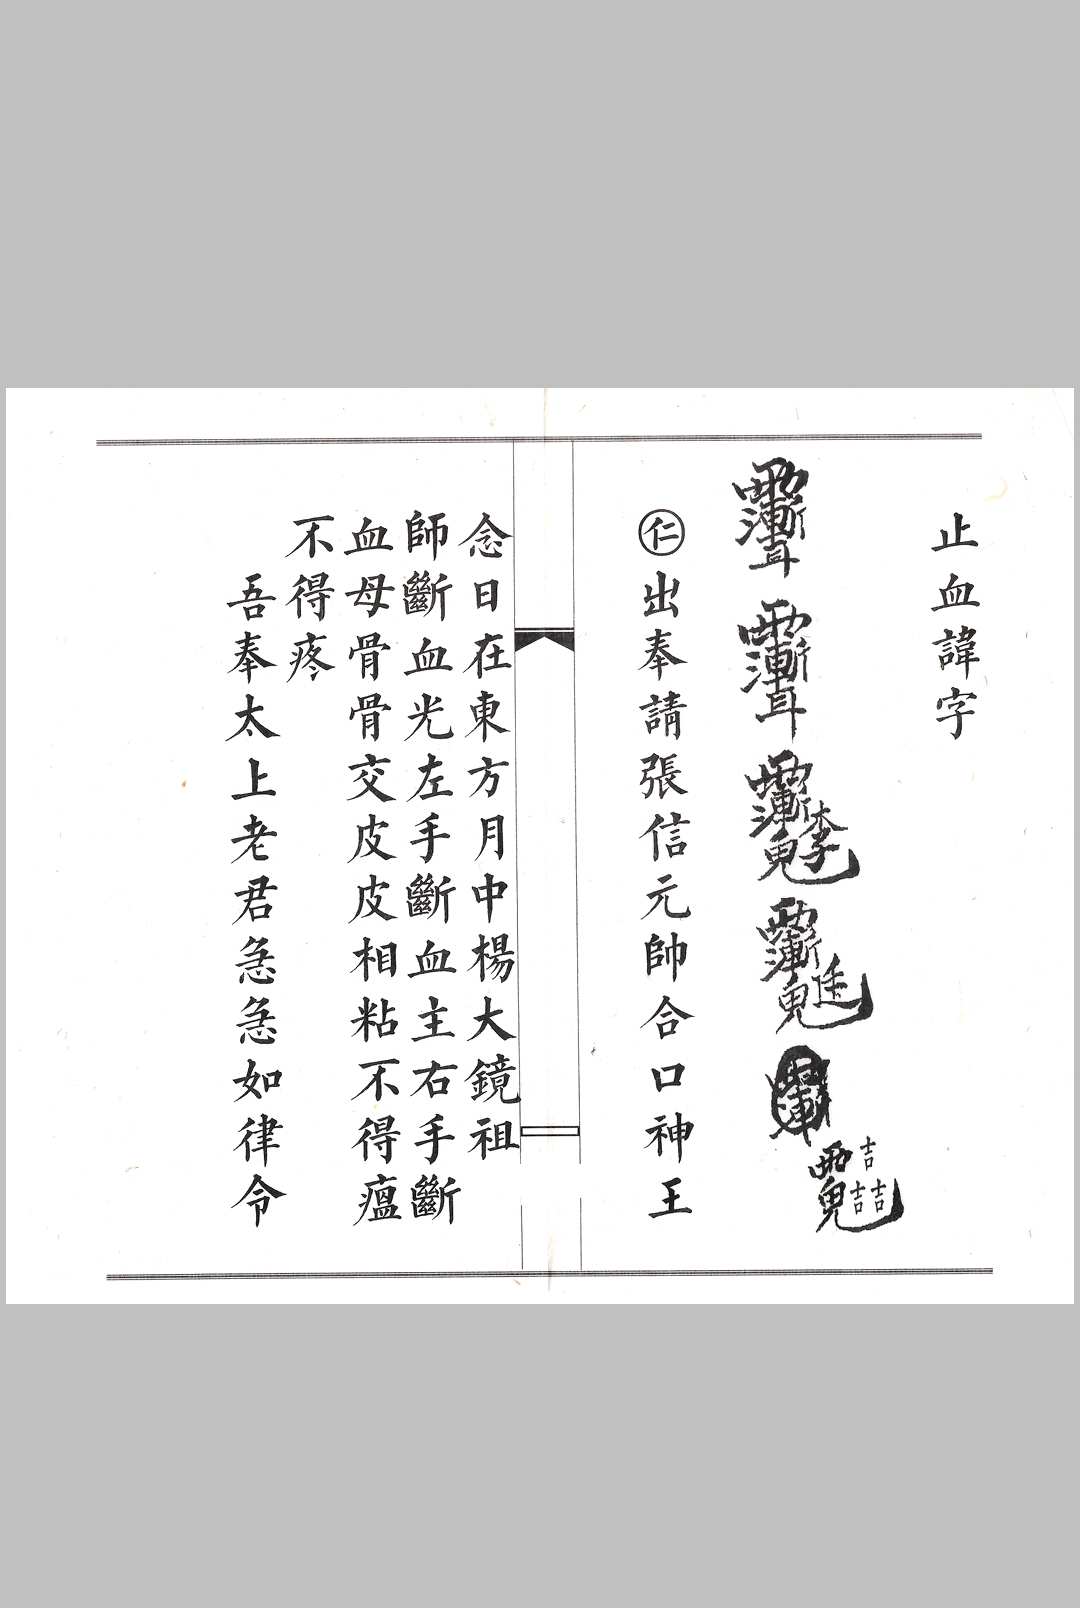 止血諱字
仁出奉請張信元帥合口神王
念日在東方月中楊大鏡祖
師斷血光左手斷血主右手斷
血母骨骨交皮皮相粘不得瘟
不得疼
吾奉太上老君急急如律令